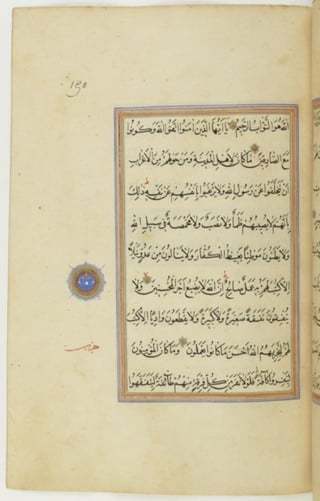 الله هو التواب الرحيم يا ايها الذين امنوا اتقوا الله وكونوا
مع الصادقين ما كان لاهل المدينة ومن حولهم من الاعراب
ان يتخلفوا عن رسول الله ولا يرغبوا بانفسهم عن نفسه ذلك
بانهم لا يصيبهم ظمأ ولا نصب ولا مخمصة في سبيل الله
ولا يطئون موطئا يغيظ الكفار ولا ينالون من عدو نيلا
الا كتب لهم به عمل صالح ان الله لا يضيع اجر المحسنين ولا
ينفقون نفقة صغيرة ولا كبيرة ولا يقطعون واديا الا كتب
لهم ليجزيهم الله احسن ما كانوا يعملون وما كان المؤمنون
لينفروا كافة فلولا نفر من كل فرقة منهم طائفة ليتفقهوا